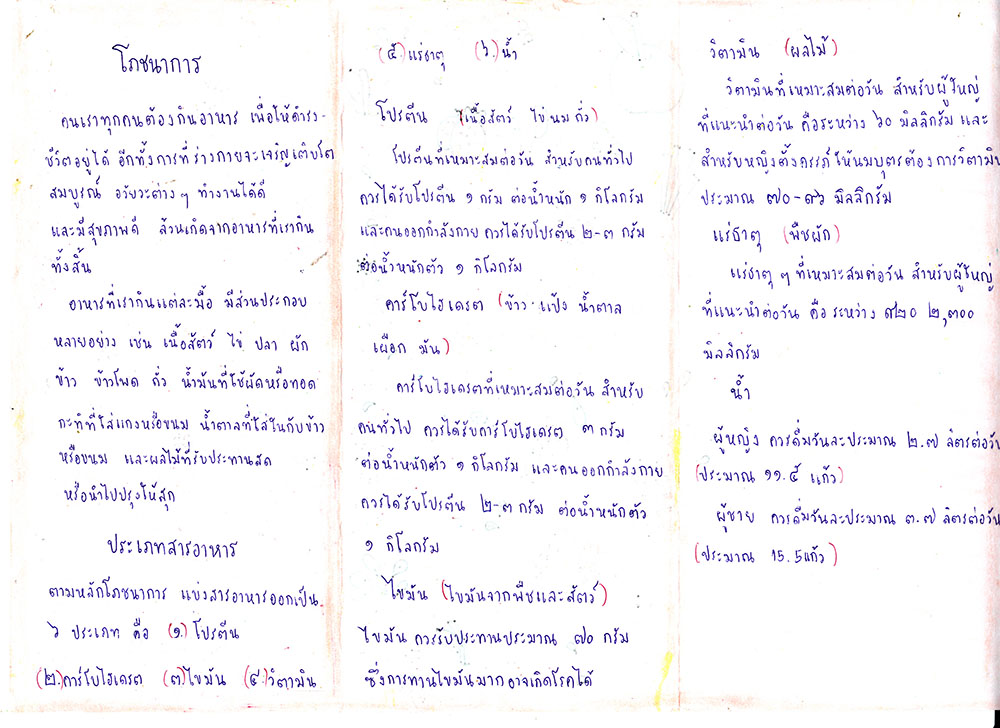 โภชนาการ
คนเราทุกคนต้องกินอาหาร เพื่อให้ดำรง-
ชีวิตอยู่ได้ อีกทั้งการที่ร่างกายจะเจริญเติบโต
สมบูรณ์ อวัยวะต่างๆ ทำงานได้ดี
และมีสุขภาพดี ล้วนเกิดจากอาหารที่เรากิน
ทั้งสิ้น
อาหารที่เรากินแต่ละมื้อ มีส่วนประกอบ
หลายอย่าง เช่น เนื้อสัตว์ ไข่ ปลา ผัก
ข้าว ข้าวโพด ถั่ว น้ำมันที่ใช้ผัดหรือทอด
กะทิที่ใส่แกงหรือขนม น้ำตาลที่ใส่ในกับข้าว
หรือขนม และผลไม้ที่รับประทานสด
หรือนำไปปรุงให้สุก
ประเภทสารอาหาร
ตามหลักโภชนาการ แบ่งสารอาหารออกเป็น
๖ ประเภท คือ (๑.) โปรตีน
(๒.) คาร์โบไฮเดรต (๓) ไขมัน (๔.) วิตามิน
(๕.) แร่ธาตุ (๖.) น้ำ
โปรตีน (เนื้อสัตว์ ไข่ นม ถั่ว)
โปรตีนที่เหมาะสมต่อวัน สำหรับคนทั่วไป
ควรได้รับโปรตีน ๑ กรัม ต่อน้ำหนัก ๑ กิโลกรัม
และคนออกกำลังกาย ควรได้รับโปรตีน ๒-๓ กรัม
ต่อน้ำหนักตัว ๑ กิโลกรัม
คาร์โบไฮเดรต (ข้าว แป้ง น้ำตาล
เผือก มัน)
คาร์โบไฮเดรตที่เหมาะสมต่อวัน สำหรับ
คนทั่วไป ควรได้รับคาร์โบไฮเดรต ๓ กรัม
ต่อน้ำหนักตัว ๑ กิโลกรัม และคนออกกำลังกาย
ควรได้รับโปรตีน ๒-๓ กรัม ต่อน้ำหนักตัว
๑ กิโลกรัม
ไขมัน (ไขมันจากพืชและสัตว์)
ไขมัน ควรรับประทานประมาณ ๗๐ กรัม
ซึ่งการทานไขมันมากอาจเกิดโรคได้
วิตามิน (ผลไม้)
วิตามินที่เหมาะสมต่อวัน สำหรับผู้ใหญ่
ที่แนะนำต่อวัน คือระหว่าง ๖๐ มิลลิกรัม และ
สำหรับหญิงตั้งครรภ์ ให้นมบุตรต้องการวิตามิน
ประมาณ ๗๐-๙๖ มิลลิกรัม
แร่ธาตุ (พืชผัก)
แร่ธาตุ ๆ ที่เหมาะสมต่อวัน สำหรับผู้ใหญ่
ที่แนะนำต่อวัน คือ ระหว่าง ๙๒๐ ๒,๓๐๐
มิลลิกรัม
น้ำ
ผู้หญิง ควรดื่มวันละประมาณ ๒.๗ ลิตรต่อวัน
(ประมาณ ๑๑.๕ แก้ว)
ผู้ชาย ควรดื่มวันละประมาณ ๓.๗ ลิตรต่อวัน
(ประมาณ 15.5แก้ว)